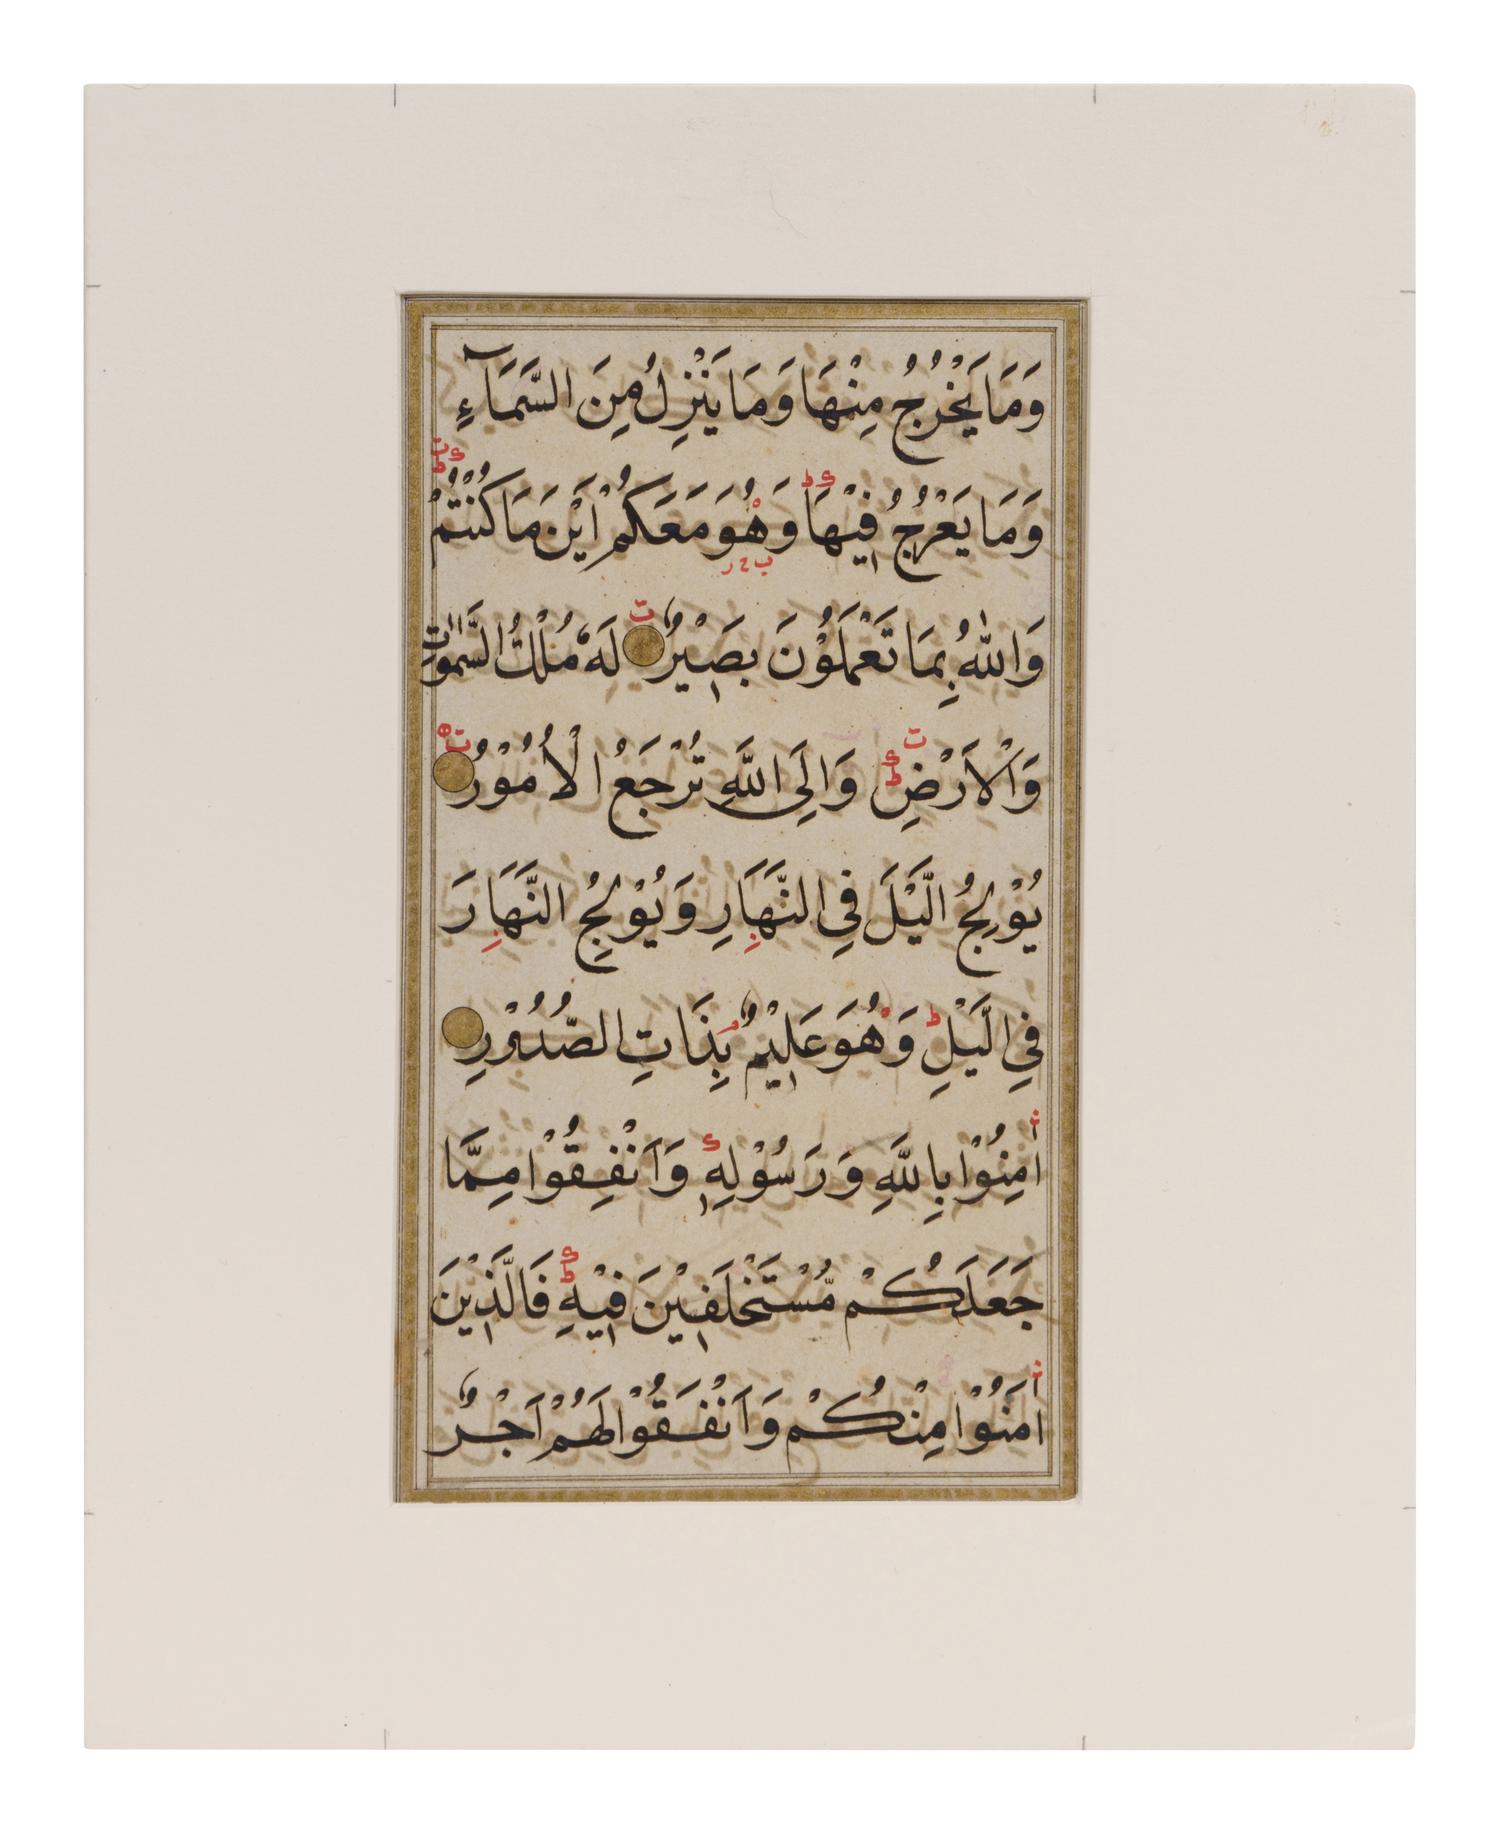 وَمَا يَخْرُجُ مِنْهَا وَمَا يَنْزِلُ مِنَ السَّمَآءِ
وَمَا يَعْرُجُ فِيْهَا وَهُوَ مَعَكُمْ اَيْنَ مَا كُنْتُمْ
وَاللّٰهُ بِمَا تَعْمَلُوْنَ بَصِيْرٌ لَهٗ مُلْكُ السَّمٰوٰتِ
وَالْاَرْضِ وَاِلَى اللَّهِ تُرْجَعُ الْاُمُوْرُ
يُوْلِجُ الَّيْلَ فِي النَّهَارِ وَيُوْلِجُ النَّهَارَ
فِي الَّيْلِ وَهُوَ عَلِيْمٌ بِذَاتِ الصُّدُوْرِ
اٰمِنُوْا بِاللَّهِ وَرَسُوْلِهٖ وَاَنْفِقُوْا مِمَّا
جَعَلَكُمْ مُّسْتَخْلَفِيْنَ فِيْهِ فَالَّذِيْنَ
اٰمَنُوْا مِنْكُمْ وَاَنْفَقُوْا لَهُمْ اَجْرٌ